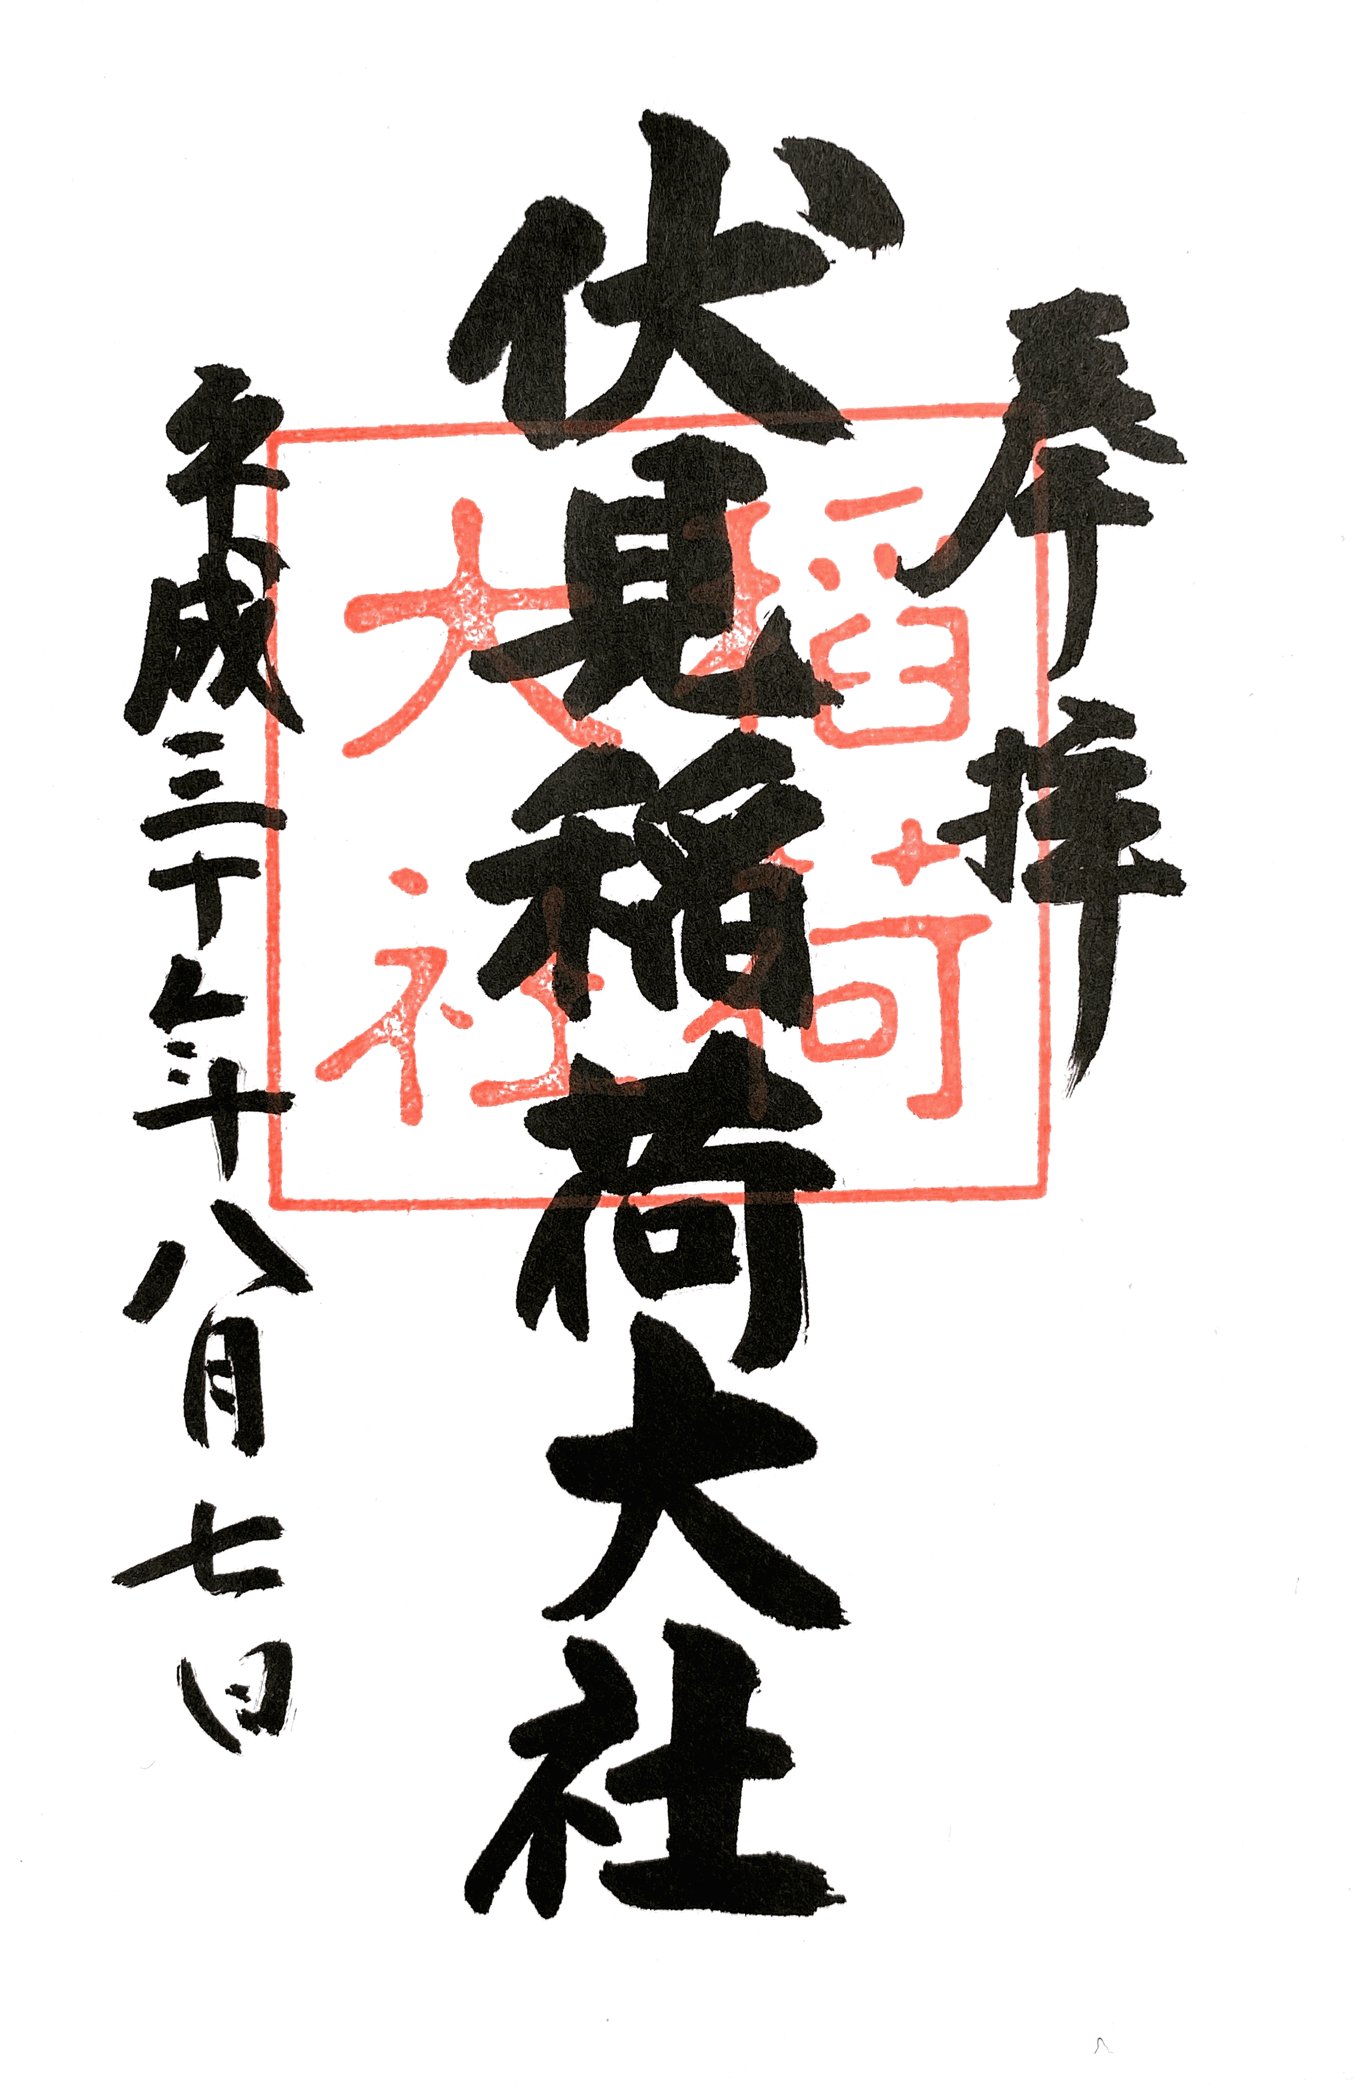 奉拝
伏見稲荷大社
平成三十年八月七日
稲荷
大社